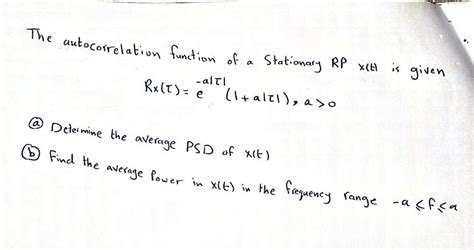 The autocorrelation function of a Stationary RP x(t) is given
Rx(τ) = e^{-a|τ|} (1+a|τ|), a>0
ⓐ Determine the average PSD of x(t)
ⓑ Find the average Power in x(t) in the frequency range -a ≤ f ≤ a